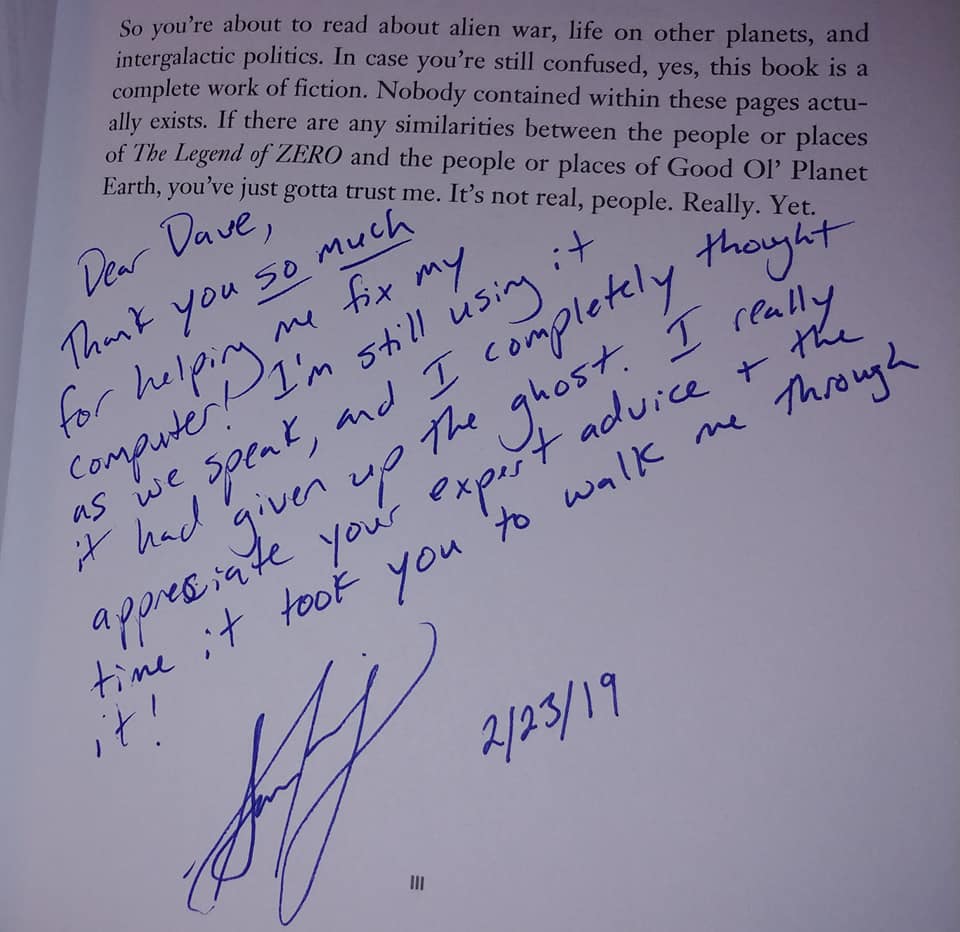 So you're about to read about alien war, life on other planets, and
intergalactic politics. In case you're still confused, yes, this book is a
complete work of fiction. Nobody contained within these pages actu-
ally exists. If there are any similarities between the people or places
of The Legend of ZERO and the people or places of Good Ol' Planet
Earth, you've just gotta trust me. It's not real, people. Really. Yet.
Dear Dave,
Thank you so much
for helping me fix my
computer! I'm still using it
as we speak, and I completely thought
it had given up the ghost. I really
appreciate your expert advice + the
time it took you to walk me through
it!
2/23/19
III